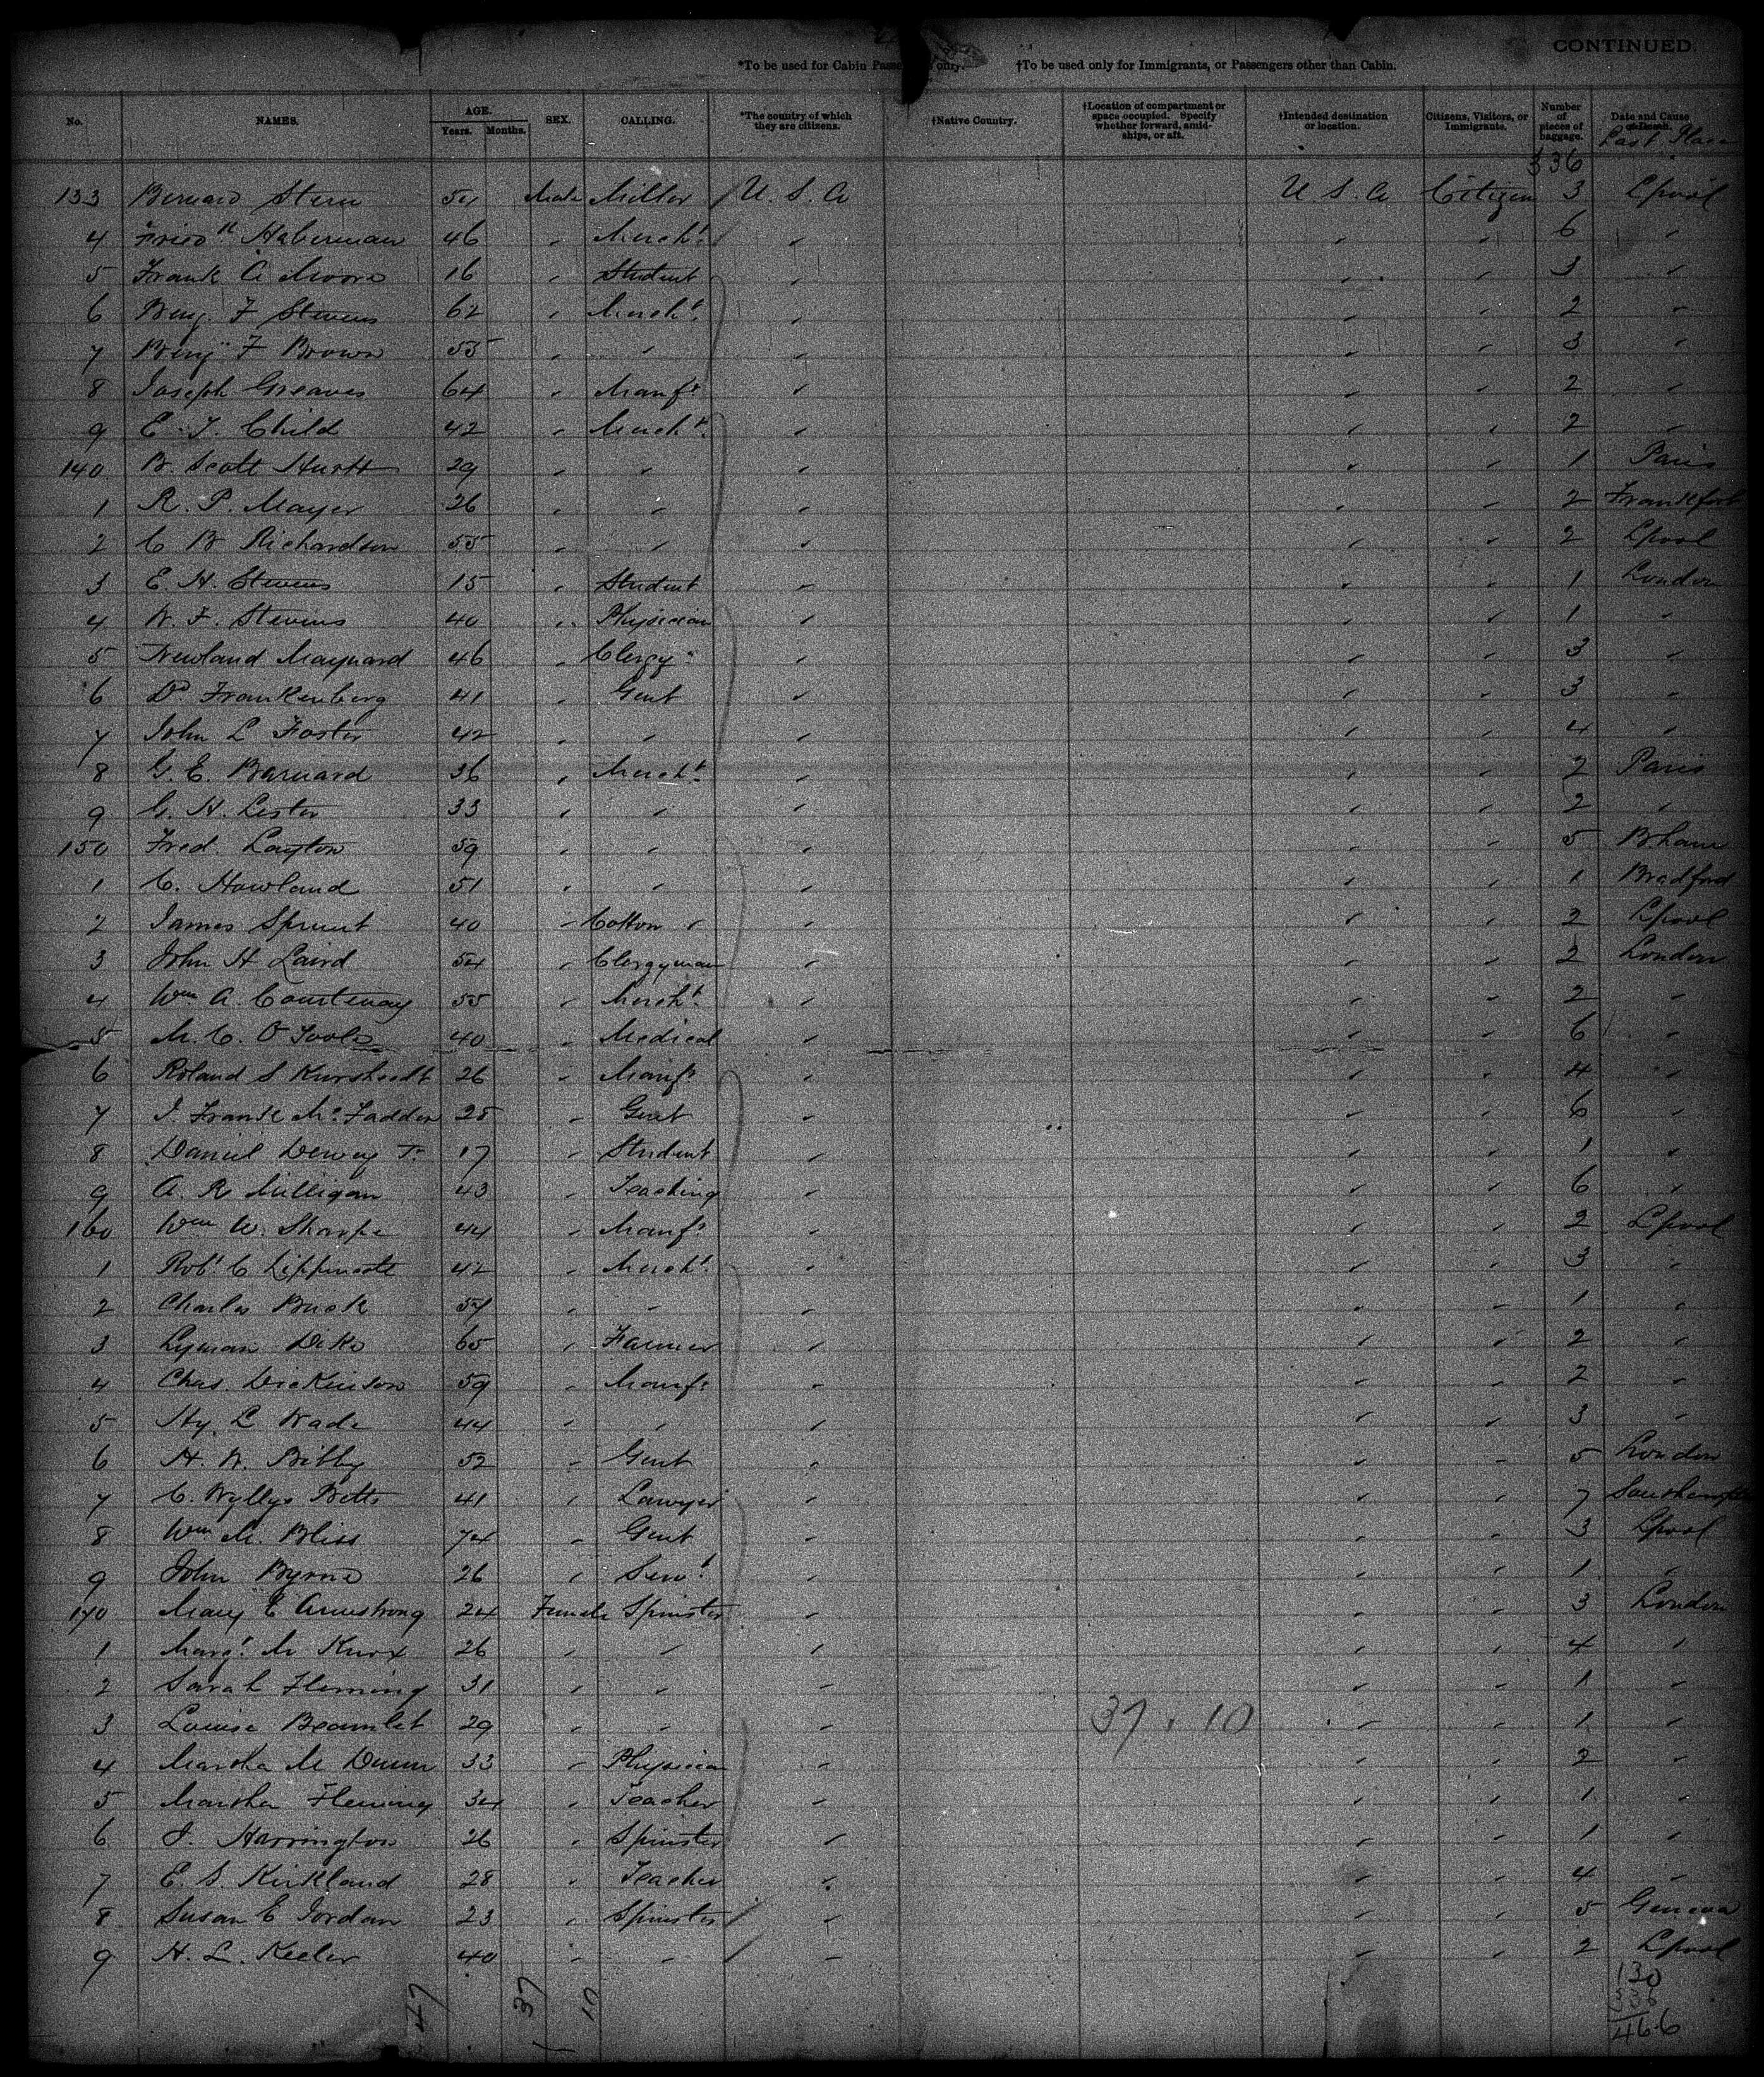 CONTINUED.
*To be used for Cabin Passengers only. †To be used only for Immigrants, or Passengers other than Cabin.
No. NAMES. AGE. Years. Months. SEX. CALLING. *The country of which they are citizens. †Native Country. †Location of compartment or space occupied. Specify whether forward, amidships, or aft. †Intended destination or location. Citizens, Visitors, or Immigrants. Number of pieces of baggage. Date and Cause of Death.
Last Place
336
133 Bernard Stern Male Miller U.S.A U.S.A Citizen 3 Lpool
4 Haberman 46 " Mercht. " " " 6 "
5 Frank A Moore 16 " Student " " " 3 "
6 Benj. F Stevens 62 " Mercht. " " " 2 "
7 Benj F Brown 55 " " " " " 3 "
8 Joseph Greaves 64 " Manfr " " " 2 "
9 E. T. Child 42 " Mercht. " " " 2 "
140 B. Scott Hurtt 29 " " " " " 1 Paris
1 R. P. Mayer 26 " " " " " 2 Frankfort
2 C B Richardson 55 " " " " " 2 Lpool
3 E. H. Stevens 15 " Student " " " 1 London
4 W. F. Stevens 40 " Physician " " " 1 "
5 Newland Maynard 46 " Clergyn " " " 3 "
6 Dd Frankenberg 41 " Gent " " " 3 "
7 John L Foster 42 " " " " " 4 "
8 G. E. Barnard 36 " Mercht. " " " 2 Paris
9 G. H. Lester 33 " " " " " 2 "
150 Fred. Layton 59 " " " " " 5 Bham
1 C. Howland 51 " " " " " 1 Bradford
2 James Sprunt 40 " Cotton " " " " 2 Lpool
3 John H Laird 54 " Clergyman " " " 2 London
4 Wm A. Courtenay 55 " Mercht. " " " 2 "
5 M. C. O'Toole 40 " Medical " " " 6 "
6 Roland S Kursheedt 26 " Manfr " " " 4 "
7 J. Frank McFadden 25 " Gent " " " 6 "
8 Daniel Dewey Jr 17 " Student " " " 1 "
9 A. R Milligan 43 " Teaching " " " 6 "
160 Wm W. Sharpe 44 " Manfr " " " 2 Lpool
1 Robt. C Lippincott 42 " Mercht. " " " 3 "
2 Charles Buck " " " " " 1 "
3 Lyman Dike 65 " Farmer " " " 2 "
4 Chas. Dickinson 59 " Manfr " " " 2 "
5 Hy. L Wade 44 " " " " " 3 "
6 H. W. Bibby 52 " Gent " " " 5 London
7 C. Wyllys Betts 41 " Lawyer " " " 7 Southampton
8 Wm M. Bliss 74 " Gent " " " 3 Lpool
9 John Byrne 26 " Servt. " " " 1 "
170 Mary E Armstrong 24 Female Spinster " " " 3 London
1 Margt. M Knox 26 " " " " " 4 "
2 Sarah Fleming 31 " " " " " 1 "
3 Louise 29 " " " 37 . 10 " " 1 "
4 Martha M Dunn 33 " Physician " " " 2 "
5 Martha Fleming 34 " Teacher " " " 1 "
6 J. Harrington 26 " Spinster " " " 1 "
7 E. S. Kirkland 28 " Teacher " " " 4 "
8 Susan E Jordan 23 " Spinster " " " 5 Geneva
9 H. L. Keeler 40 " " " " " 2 Lpool
47 37 10
130
336
466